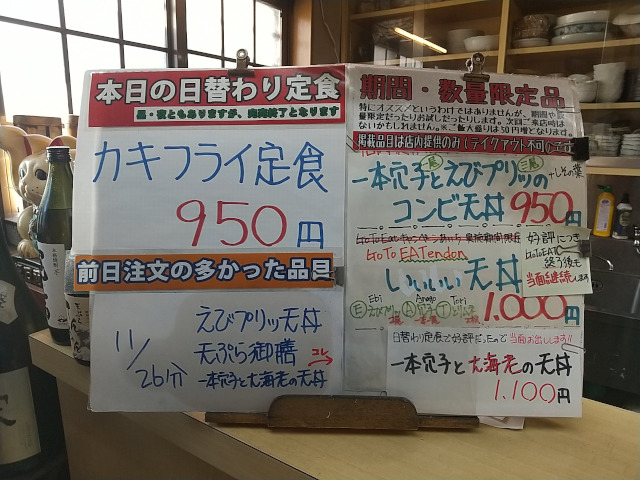 本日の日替わり定食
品・夜ともありますが、売切終了となります
カキフライ定食
950円
前日注文の多かった品目
11/26分
えびプリッ天丼
天ぷら御膳
一本穴子と大海老の天丼
コレ
期間・数量限定品
特にオススメというわけではありませんが、期間や数
量限定だったりお試しだったりします。次回ご来店時に
はないかもしれません。※ご飯大盛りは50円増となります。
掲載品目は店内提供のみ(テイクアウト不可)です
一本穴子とえびプリッの
コンビ天丼 950円
GoTo EATendon
いいいい天丼
好評につき
GoToEAT
終了後も
当面継続します
Ebi Anago Tori
1.000円
日替わり定食で好評だったので当面お出しします!!
一本穴子と大海老の天丼
1.100円